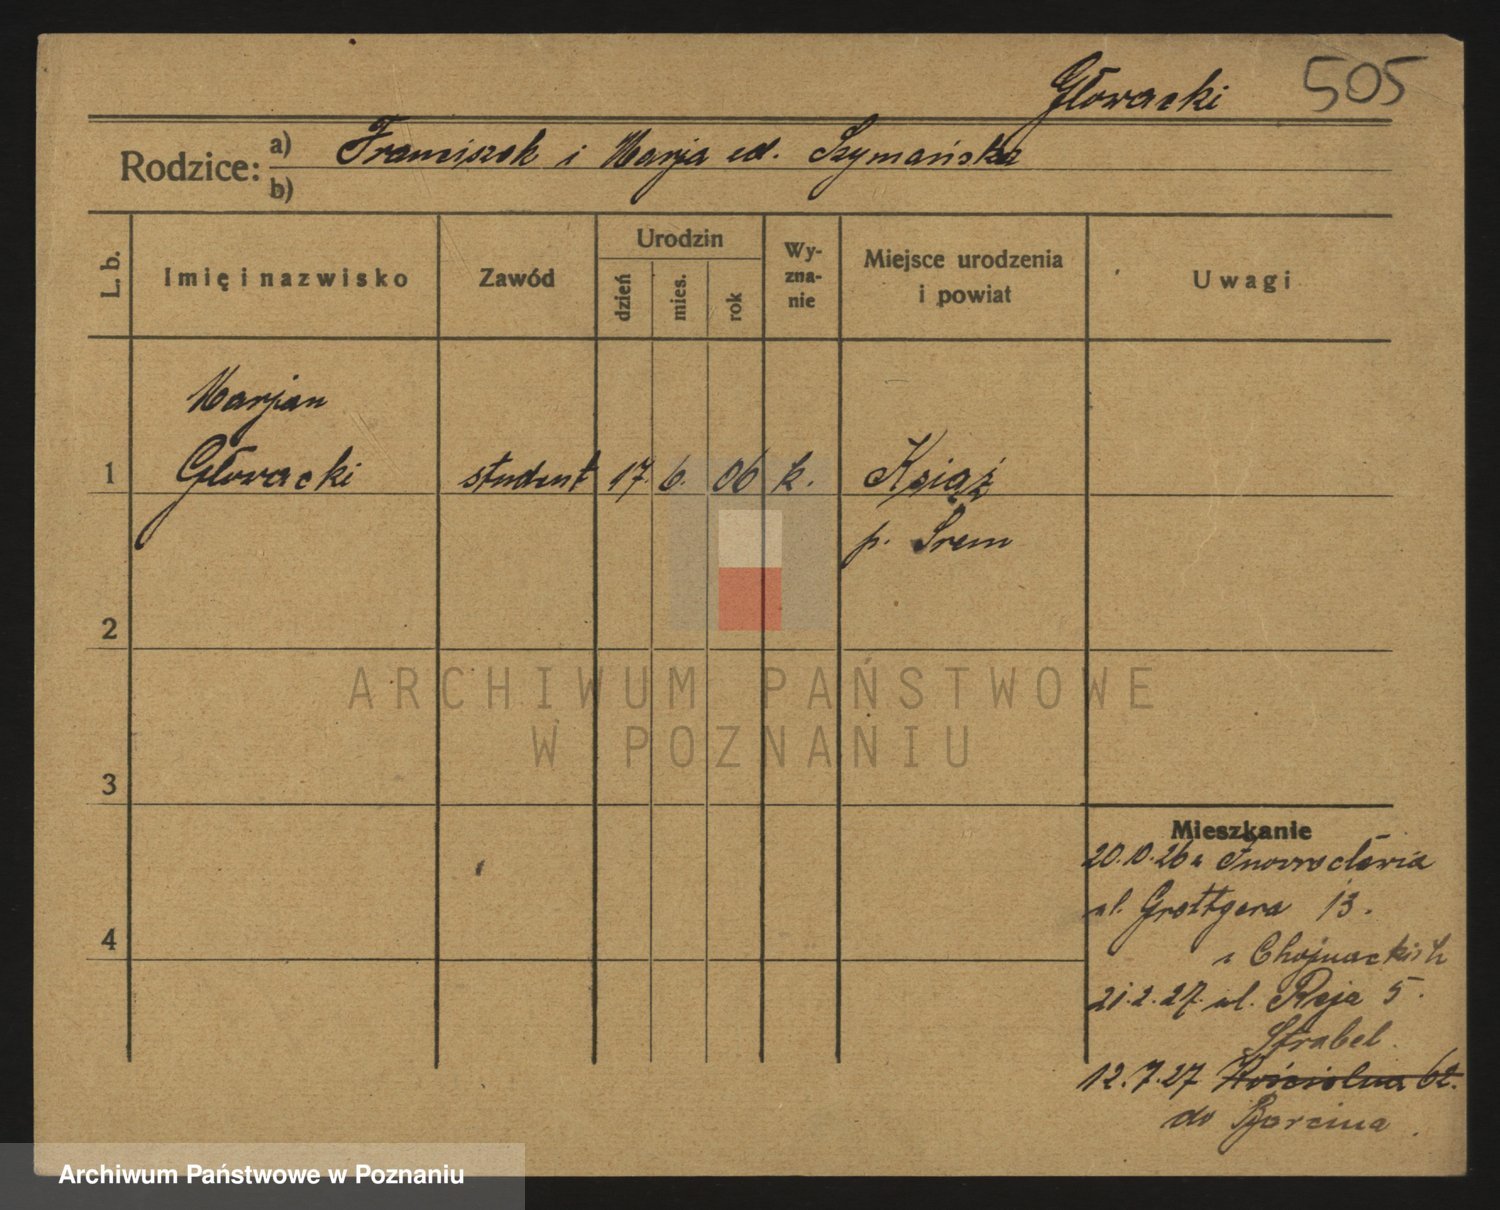 Głowacki 505
Rodzice: a) Franciszek i Marja ud. Szymańska
b)
L. b. Imię i nazwisko Zawód Urodzin dzień mies. rok Wy-zna-nie Miejsce urodzenia i powiat Uwagi
Marjan
1 Głowacki student 17. 6. 06 k. Książ
p. Śrem
2
ARCHIWUM PAŃSTWOWE
W POZNANIU
3
Mieszkanie
20.10.26 z Inowrocławia
4 ul. Grottgera 13.
z Chojnackich
21.2.27 ul. Reja 5.
Strabel.
12.7.27 Kościelna 62.
do Barcina.
Archiwum Państwowe w Poznaniu